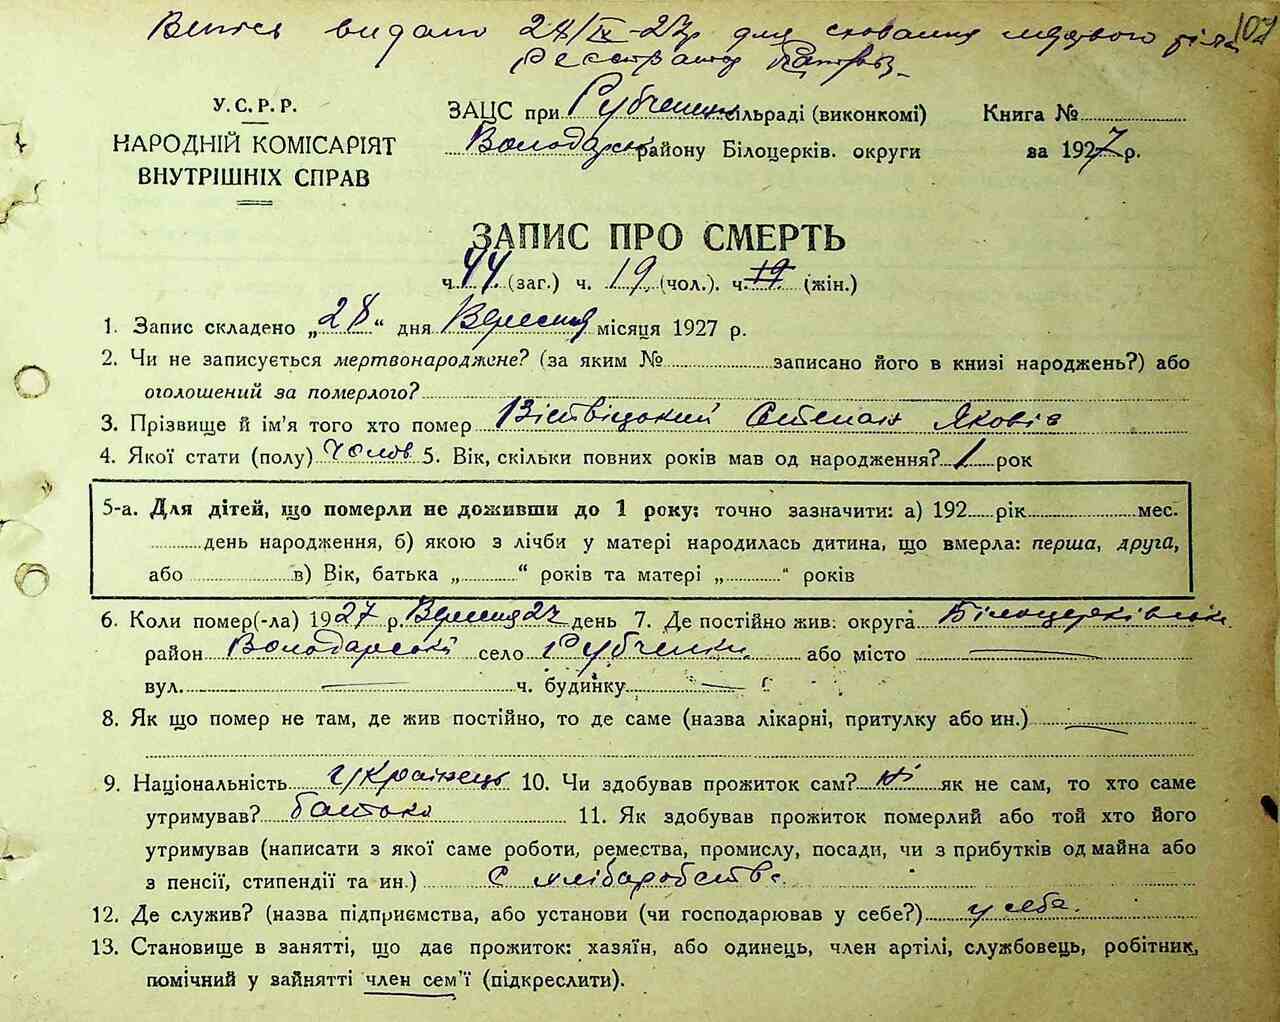 Випись видано 28/IX-27р для сховання мертвого тіла
107
Реєстратор
У.С.Р.Р.
НАРОДНІЙ КОМІСАРІЯТ
ВНУТРІШНІХ СПРАВ
ЗАЦС при Рубченський сільраді (виконкомі)
Володарськ району Білоцерків. округи
Книга №
за 1927 р.
ЗАПИС ПРО СМЕРТЬ
ч. 44 (заг.) ч. 19 (чол.). ч. 19 (жін.)
1. Запис складено „28“ дня Вересня місяця 1927 р.
2. Чи не записується мертвонароджене? (за яким № записано його в книзі народжень?) або
оголошений за померлого?
3. Прізвище й ім'я того хто помер Вітвіцький Степан Яковів
4. Якої стати (полу) Чолов 5. Вік, скільки повних років мав од народження? 1 рок
5-а. Для дітей, що померли не доживши до 1 року: точно зазначити: а) 192 рік мес.
день народження, б) якою з лічби у матері народилась дитина, що вмерла: перша, друга,
або в) Вік, батька „ “ років та матері „ “ років
6. Коли помер(-ла) 1927 р. Вересня 27 день 7. Де постійно жив: округа Білоцерківська
район Володарський село Рубченки або місто
вул. ч. будинку
8. Як що помер не там, де жив постійно, то де саме (назва лікарні, притулку або ин.)
9. Національність українець 10. Чи здобував прожиток сам? ні як не сам, то хто саме
утримував? батько 11. Як здобував прожиток померлий або той хто його
утримував (написати з якої саме роботи, ремества, промислу, посади, чи з прибутків од майна або
з пенсії, стипендії та ин.) С хліборобства
12. Де служив? (назва підприємства, або установи (чи господарював у себе?) у себе.
13. Становище в занятті, що дає прожиток: хазяїн, або одинець, член артілі, службовець, робітник,
помічний у зайнятті член сем'ї (підкреслити).